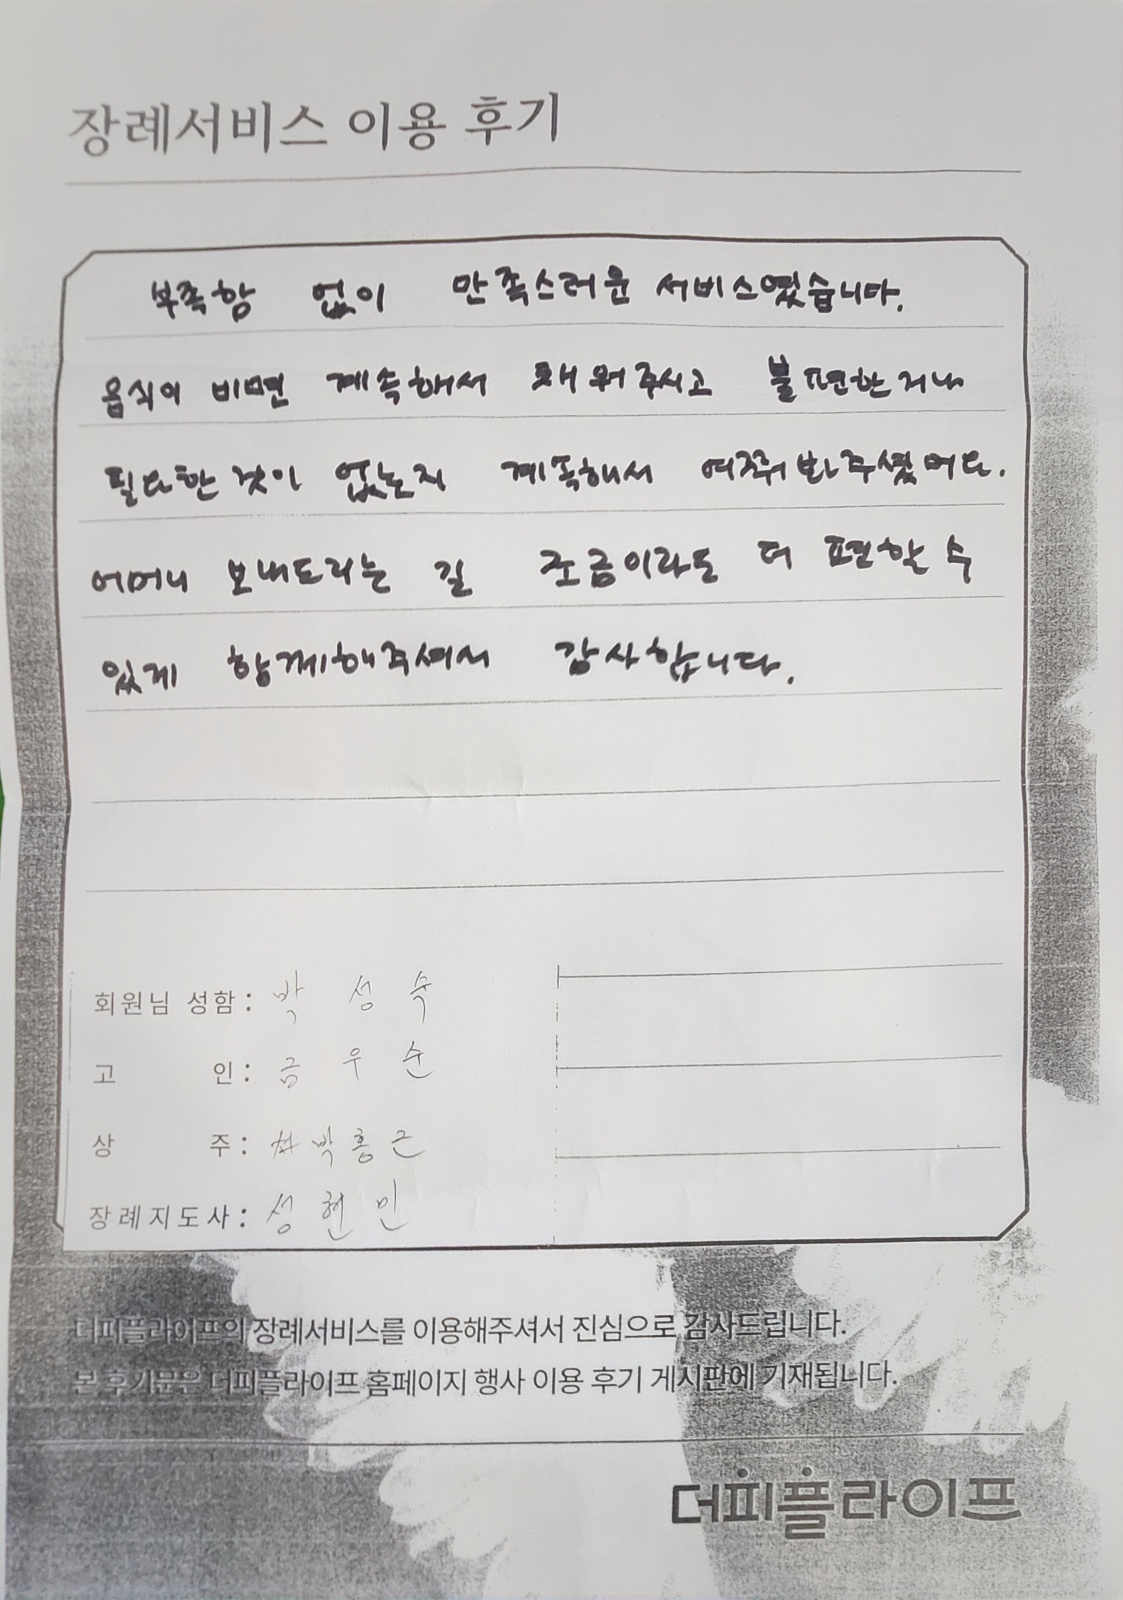 장례서비스 이용 후기
부족함 없이 만족스러운 서비스였습니다.
음식이 비면 계속해서 채워주시고 불편한거나
필요한 것이 없는지 계속해서 여쭤봐주셨어요.
어머니 보내드리는 길 조금이라도 더 편할 수
있게 함께해주셔서 감사합니다.
회원님 성함: 박성숙
고 인: 금우순
상 주: 박홍근
장례지도사: 성현민
더피플라이프의 장례서비스를 이용해주셔서 진심으로 감사드립니다.
본 후기문은 더피플라이프 홈페이지 행사 이용 후기 게시판에 기재됩니다.
더피플라이프